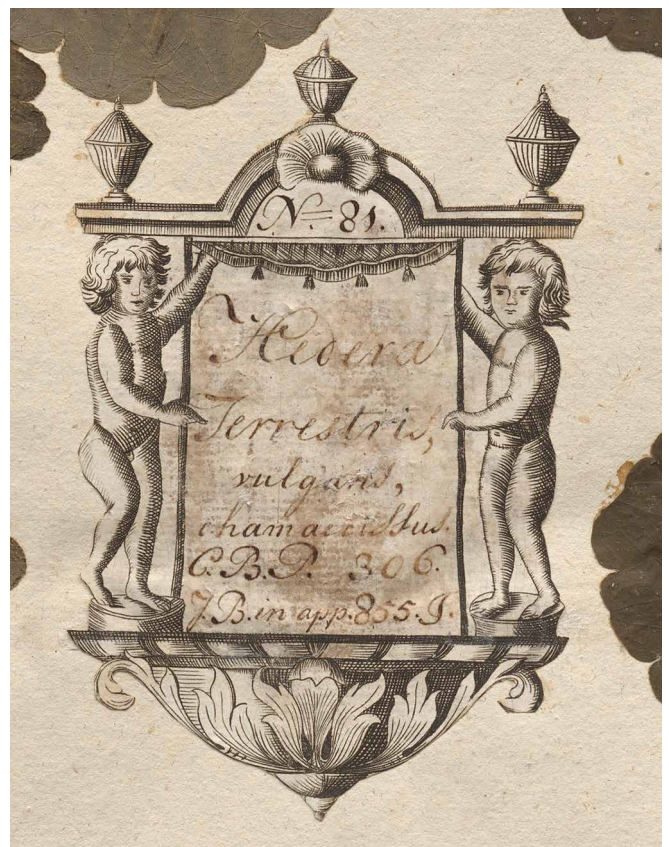 N.° 81.
Hedera
Terrestris,
vulgaris,
chamaecissus.
C.B.P. 306.
J.B. in app. 855. J.